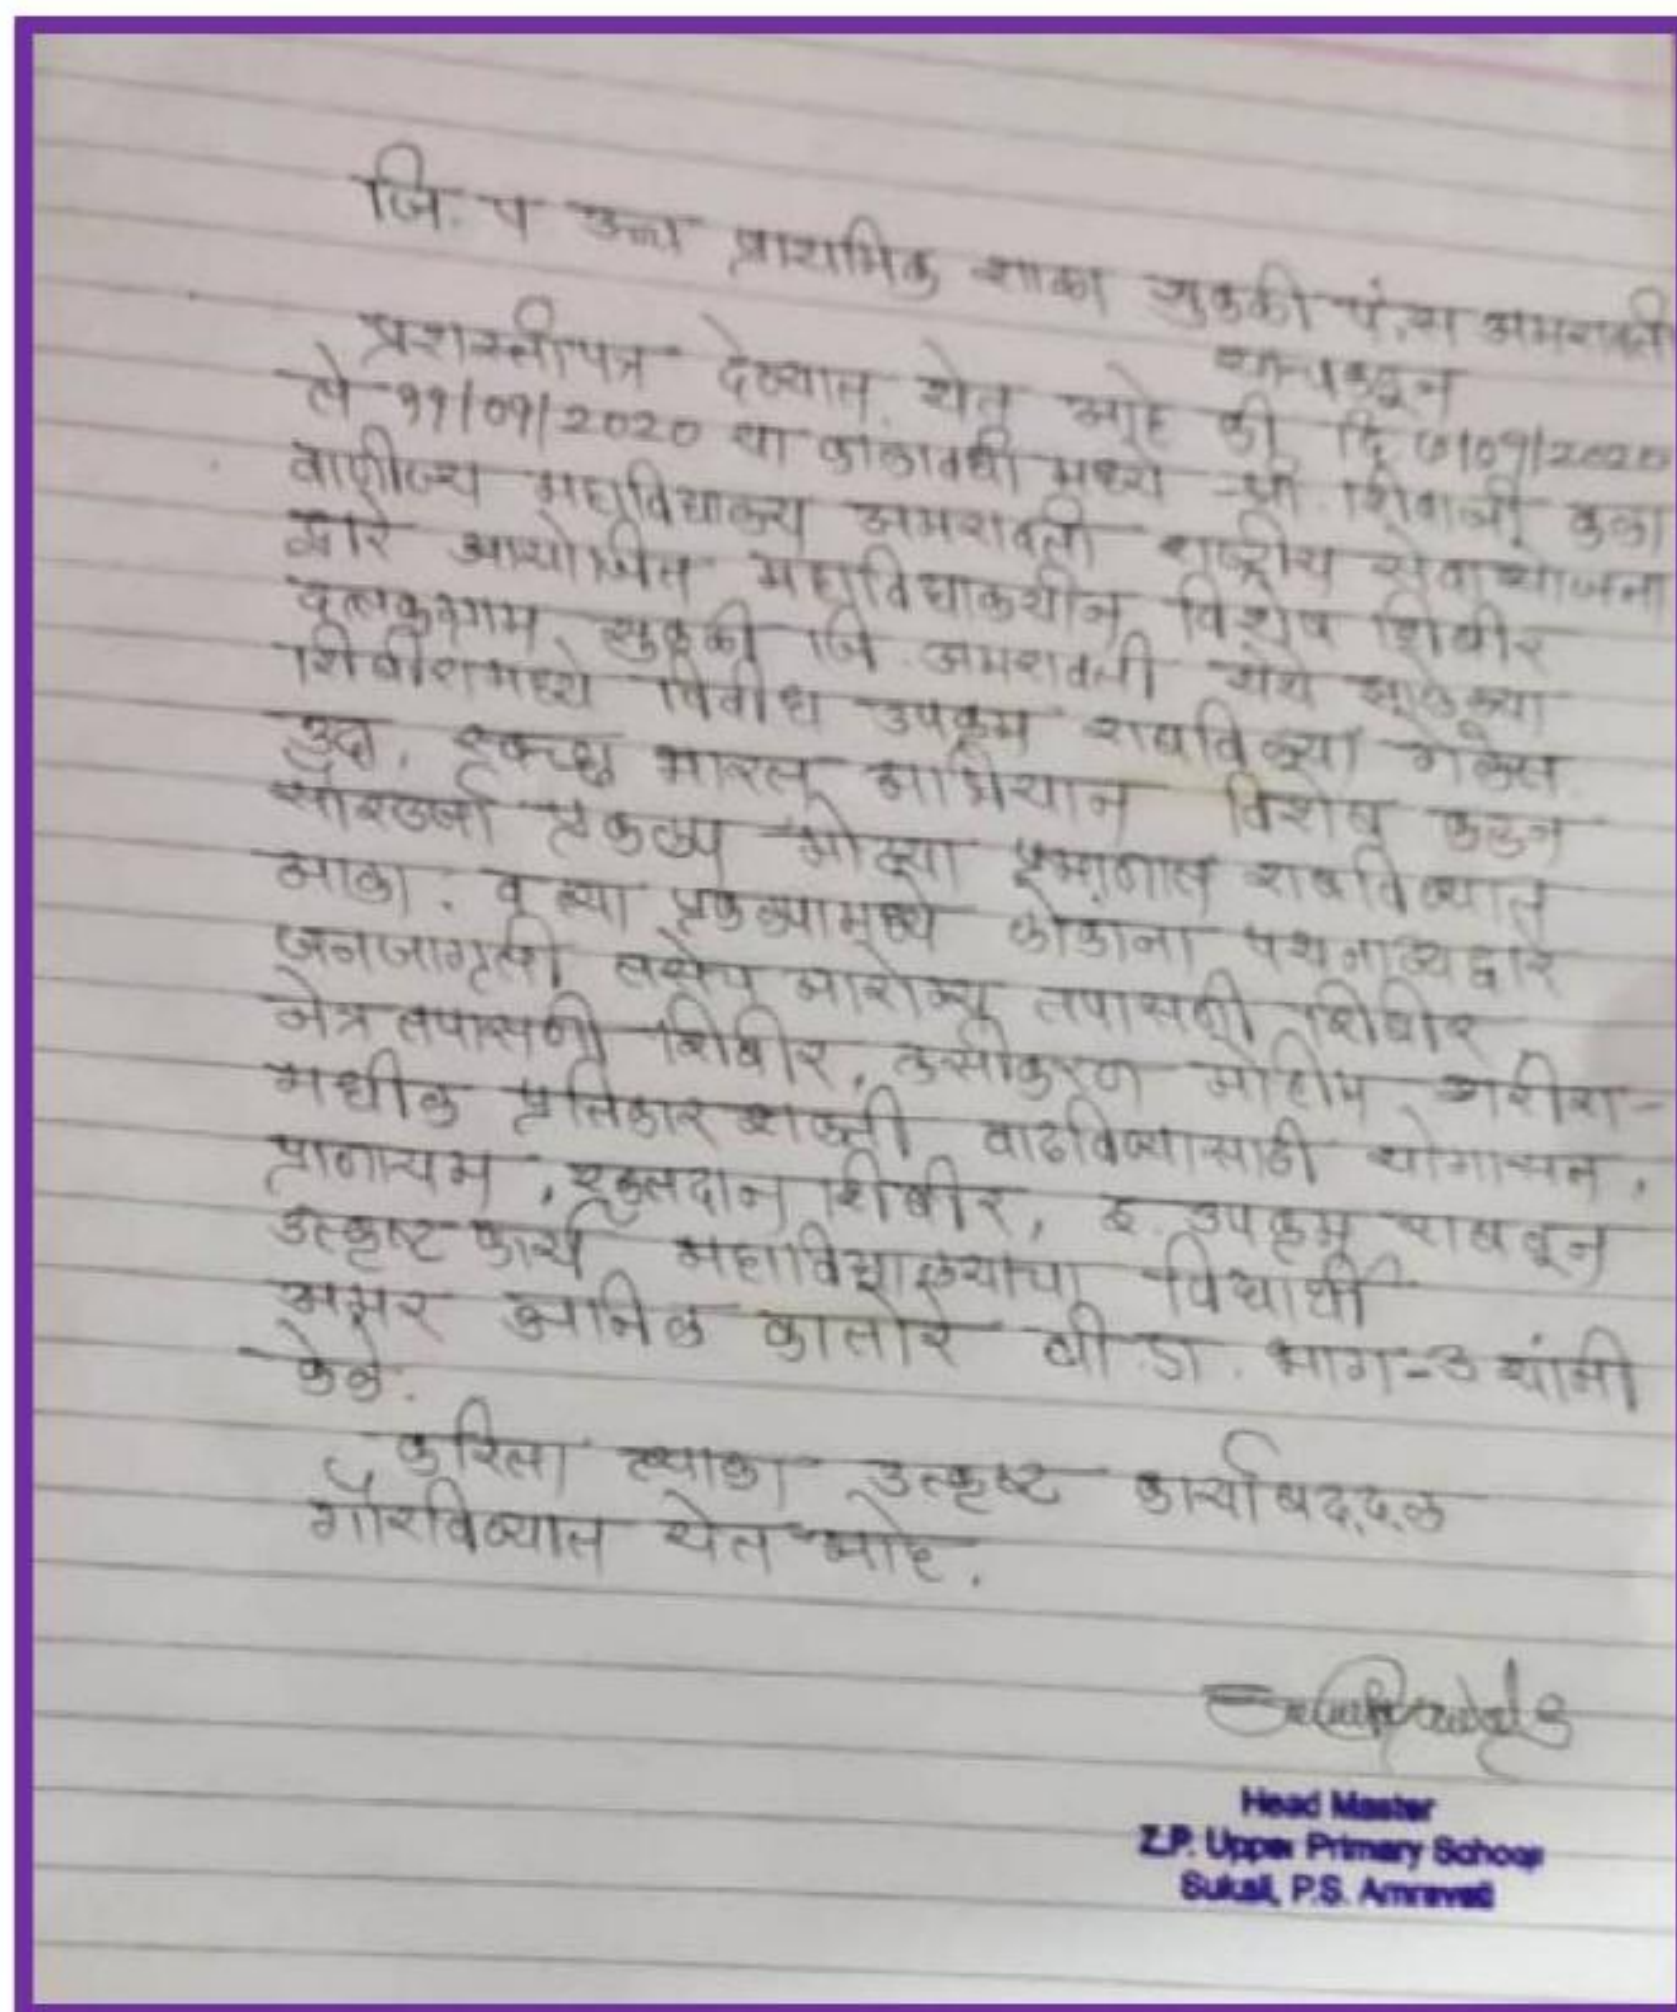 जि. प उच्च प्राथमिक शाळा सुकळी पं.स अमरावती
यांचेकडून
प्रशस्तीपत्र देण्यात येत आहे की दि ७/०१/2020
ते ११/०१/2020 या कालावधी मध्ये श्री. शिवाजी कला
वाणीज्य महाविद्यालय अमरावती राष्ट्रीय सेवा योजना
द्वारे आयोजित महाविद्यालयीन विशेष शिबीर
दत्तकग्राम सुकळी जि. अमरावती येथे झालेल्या
शिबीरामध्ये विवीध उपक्रम राबविल्या गेलेत.
उदा. स्वच्छ भारत अभियान विशेष करुन
सौरउर्जा प्रकल्प मोठ्या प्रमाणात राबविण्यात
आला. व त्या प्रकल्पामध्ये लोकांना पथनाट्यद्वारे
जनजागृती तसेच आरोग्य तपासणी शिबीर,
नेत्र तपासणी शिबीर, लसीकरण मोहीम शरीरा-
मधील प्रतिकार शक्ती वाढविण्यासाठी योगासन,
प्राणायम, रक्तदान शिबीर, इ. उपक्रम राबवून
उत्कृष्ट कार्य महाविद्यालयाचा विद्यार्थी
अमर अनिल कातोरे बी.ए. भाग-३ यांनी
केले.
करिता त्याला उत्कृष्ट कार्याबद्दल
गौरविण्यात येत आहे.
Head Master
Z.P. Upper Primary School
Sukali, P.S. Amravati